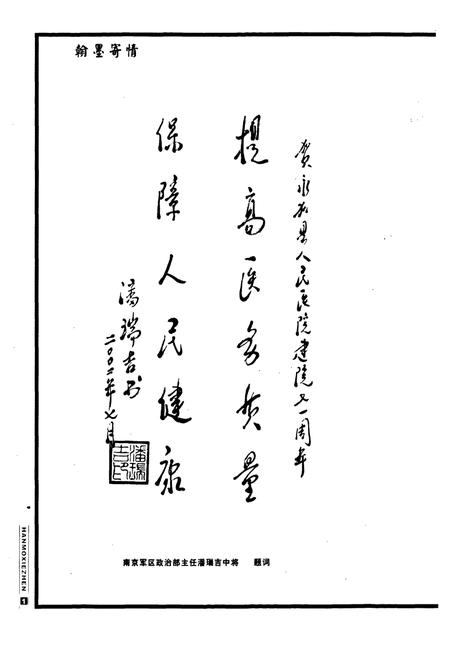 翰墨寄情
贺永县人民医院建院一周年
提高医务质量
保障人民健康
潘瑞吉书
二〇〇二年七月
潘瑞吉印
南京军区政治部主任潘瑞吉中将 题词
HANMOXIEZHEN 1